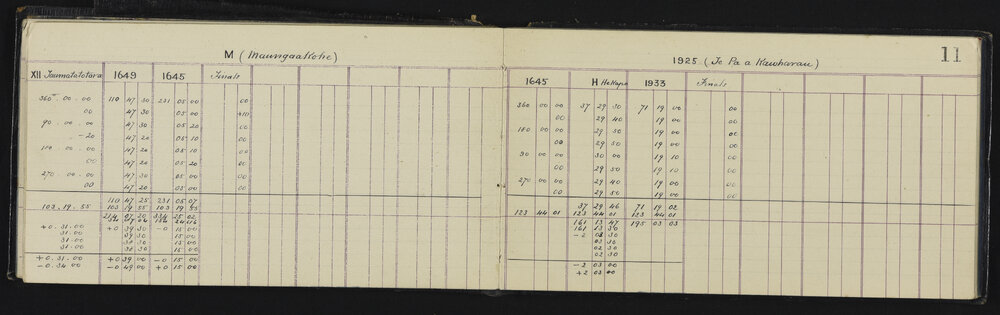 M (Maungaakohe)
XII Taumatatotara 1649 1645 Finals
360 00 00 110 47 30 231 05 00 00
00 47 30 05 00 +10
90 00 00 47 30 05 20 00
-20 47 20 05 10 00
180 00 00 47 20 05 10 00
00 47 20 05 20 00
270 00 00 47 30 05 00 00
00 47 20 05 00 00
110 47 25 231 05 07
103 19 55 103 19 55 103 19 55
214 07 20 334 25 02
+0 31 00 +0 39 30 -0 15 00
31 00 39 30 15 00
31 00 38 30 15 00
31 00 38 30 15 00
+0 31 00 +0 39 00 -0 15 00
-0 34 00 -0 49 00 +0 15 00
11
1925 (Te Pa a Kawharau)
1645 H Hakapa 1933 Finals
360 00 00 37 29 30 71 19 00 00
00 29 40 19 00 00
180 00 00 29 50 19 00 00
00 29 50 19 00 00
90 00 00 30 00 19 10 00
00 29 50 19 10 00
270 00 00 29 40 19 00 00
00 29 50 19 00 00
37 29 46 71 19 02
123 44 01 123 44 01 123 44 01
161 13 47 195 03 03
161 13 30
-2 03 30
03 30
02 30
02 30
-2 03 00
+2 03 00